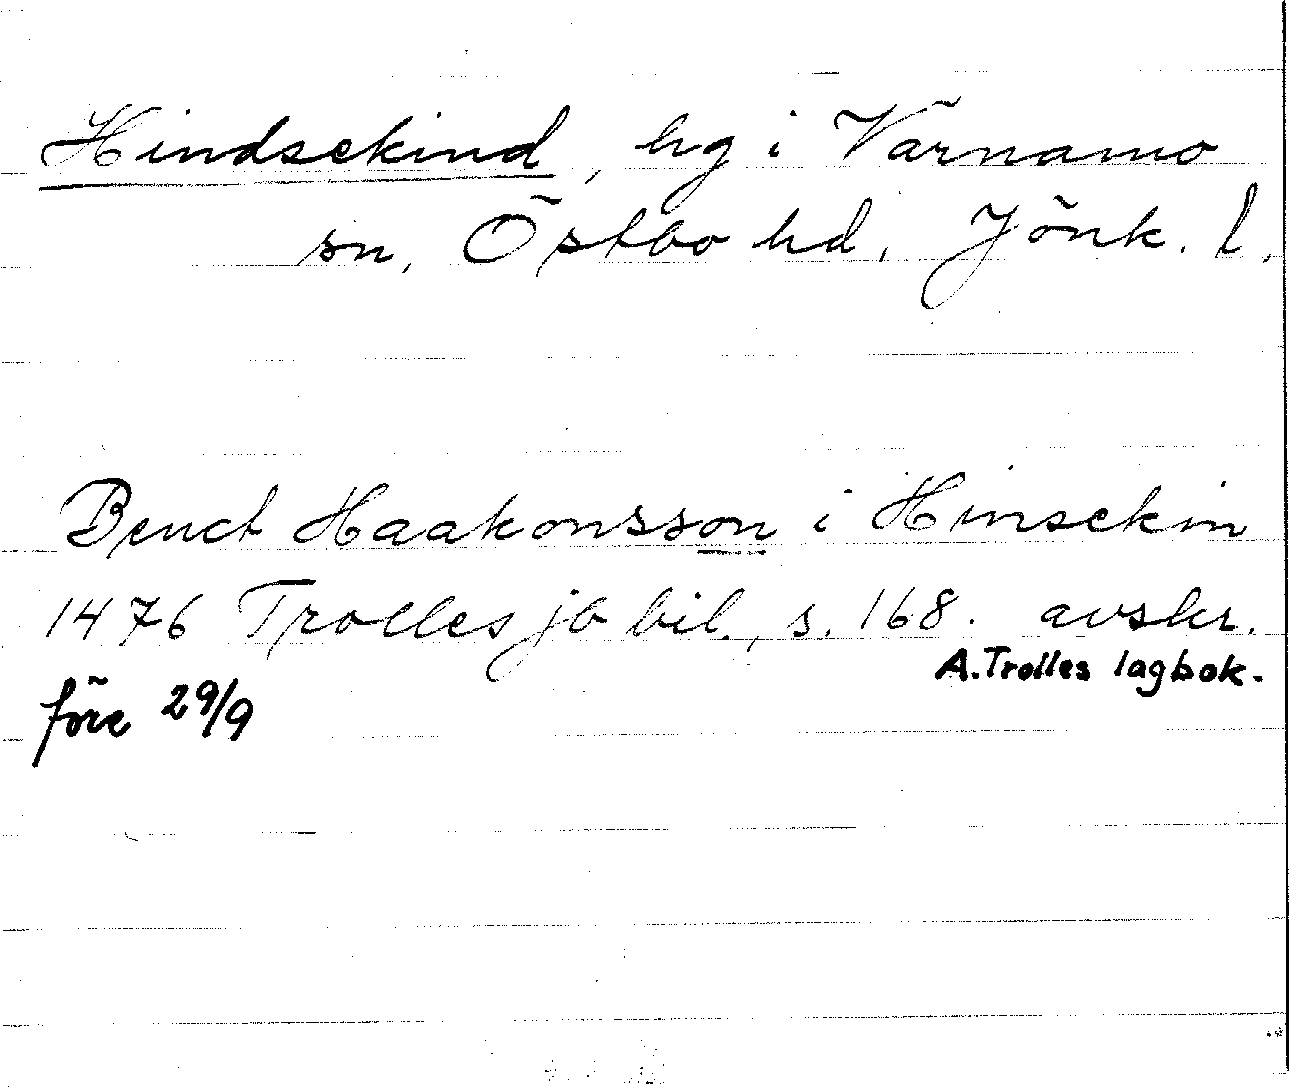 Hindsekind, hg i Värnamo
sn, Östbo hd, Jönk. l.
Benct Haakonsson i Hinsekin
1476 Trolles jb bil., s. 168. avskr.
A. Trolles lagbok.
före 29/9